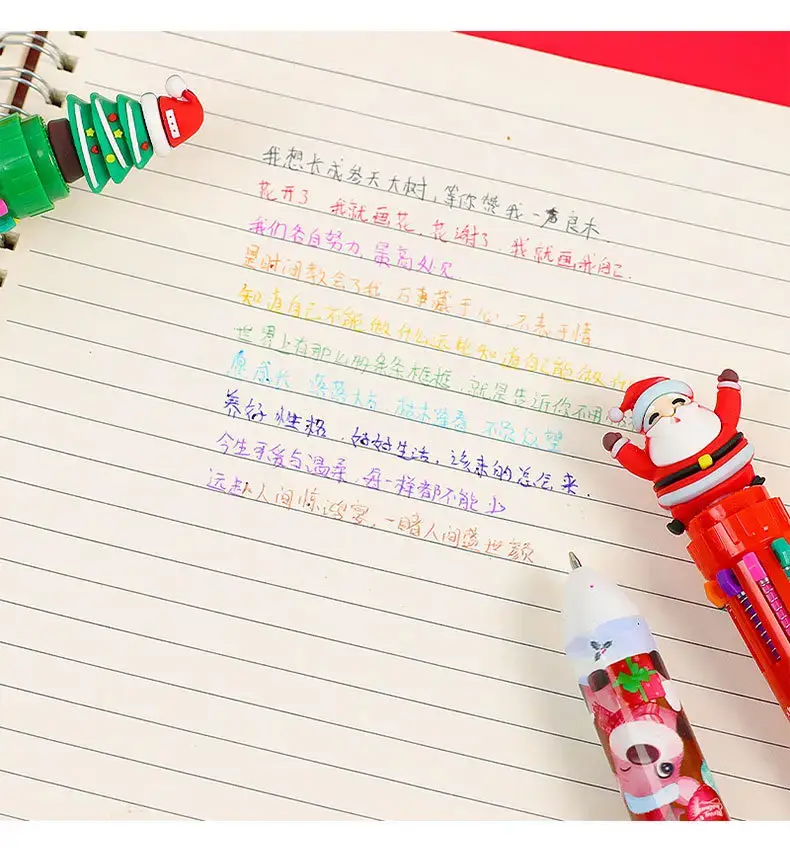 我想长成参天大树，等你赞我一声良木
花开了 我就画花，花谢了，我就画我自己
我们各自努力 最高处见
是时间教会了我 万事藏于心 不表于情
知道自己不能做什么远比知道自己能做什
世界上有那么册条条框框，就是告诉你不用
愿成长 落落大方 枯木逢春 不负众望
养好性格，好好生活，该来的总会来．
今生可爱与温柔，每一样都不能少
远赴人间惊鸿宴，一睹人间盛世颜